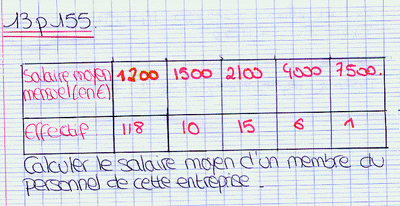 13 p 155.
Salaire moyen 1200 1500 2100 4000 7500.
mensuel (en €)
Effectif 118 10 15 6 1
Calculer le salaire moyen d'un membre du
personnel de cette entreprise.